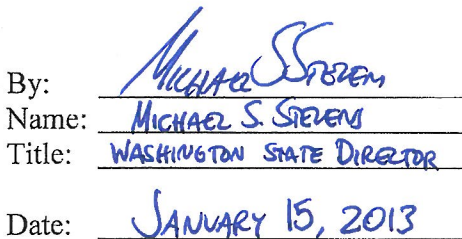 By: Michael S Stevens
Name: Michael S. Stevens
Title: Washington State Director
Date: January 15, 2013